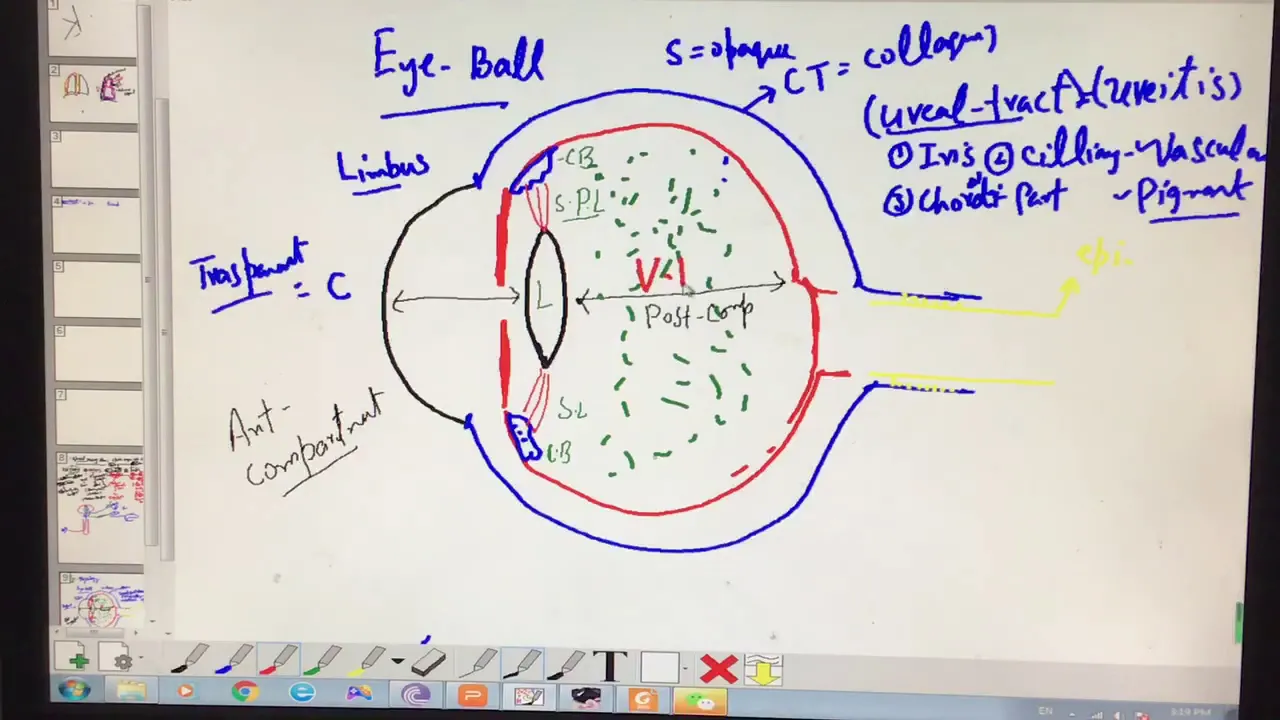 Eye-Ball
S = opaque
CT = collagen
(Uveal-tract) = (Uveitis)
① Iris ② Cilling - Vascular
③ Choroid Part - Pigment
Limbus
CB
S.P.L
Trasparent = C
L
V
Post-Comp
epi.
Ant-compartment
S.L
CB
T
EN
9:19 PM
1
2
3
4
5
6
7
8
9